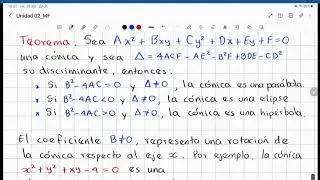 Unidad 02_MF
Teorema. Sea Ax²+Bxy+Cy²+Dx+Ey+F=0
una cónica y sea Δ = 4ACF - AE² - B²F + BDE - CD²
su discriminante, entonces:
• Si B²-4AC = 0 y Δ≠0, la cónica es una parábola.
• Si B²-4AC<0 y Δ≠0, la cónica es una elipse
• Si B²-4AC>0 y Δ≠0, la cónica es una hipérbola.
El coeficiente B≠0, representa una rotación de
la cónica respecto al eje x. Por ejemplo, la cónica
x²+y²+xy-4=0 es una